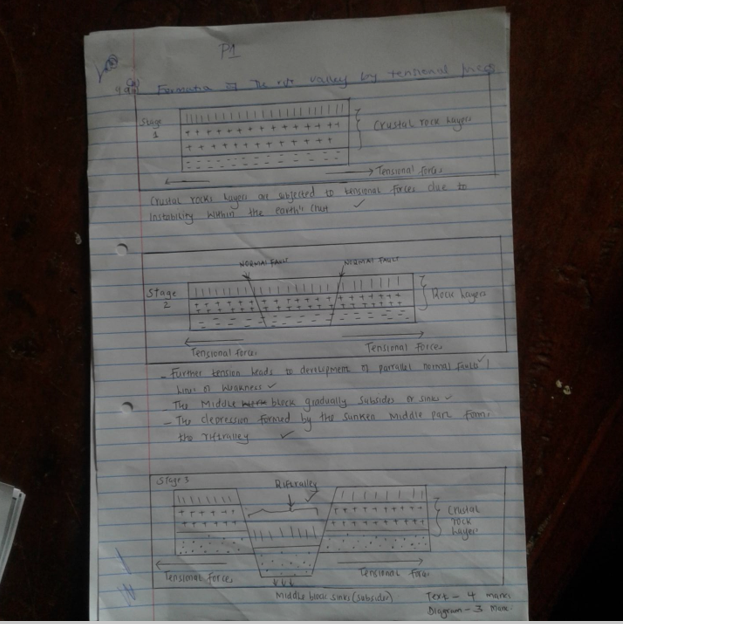 P1
Formation of The rift valley by tensional forces
Stage
1
Crustal rock layers
Tensional forces
Crustal rocks layers are subjected to tensional forces due to
instability within the earth's crust ✓
NORMAL FAULT
NORMAL FAULT
Stage
2
Rock layers
Tensional forces
Tensional forces
- Further tension leads to development of parallel normal faults ✓ /
lines of weakness ✓
- The Middle block gradually subsides or sinks ✓
- The depression formed by the sunken middle part forms
the riftvalley ✓
Stage 3
Riftvalley
Crustal
rock
layers
Tensional forces
Tensional forces
Middle block sinks (subsides)
Text - 4 marks
Diagram - 3 Marks